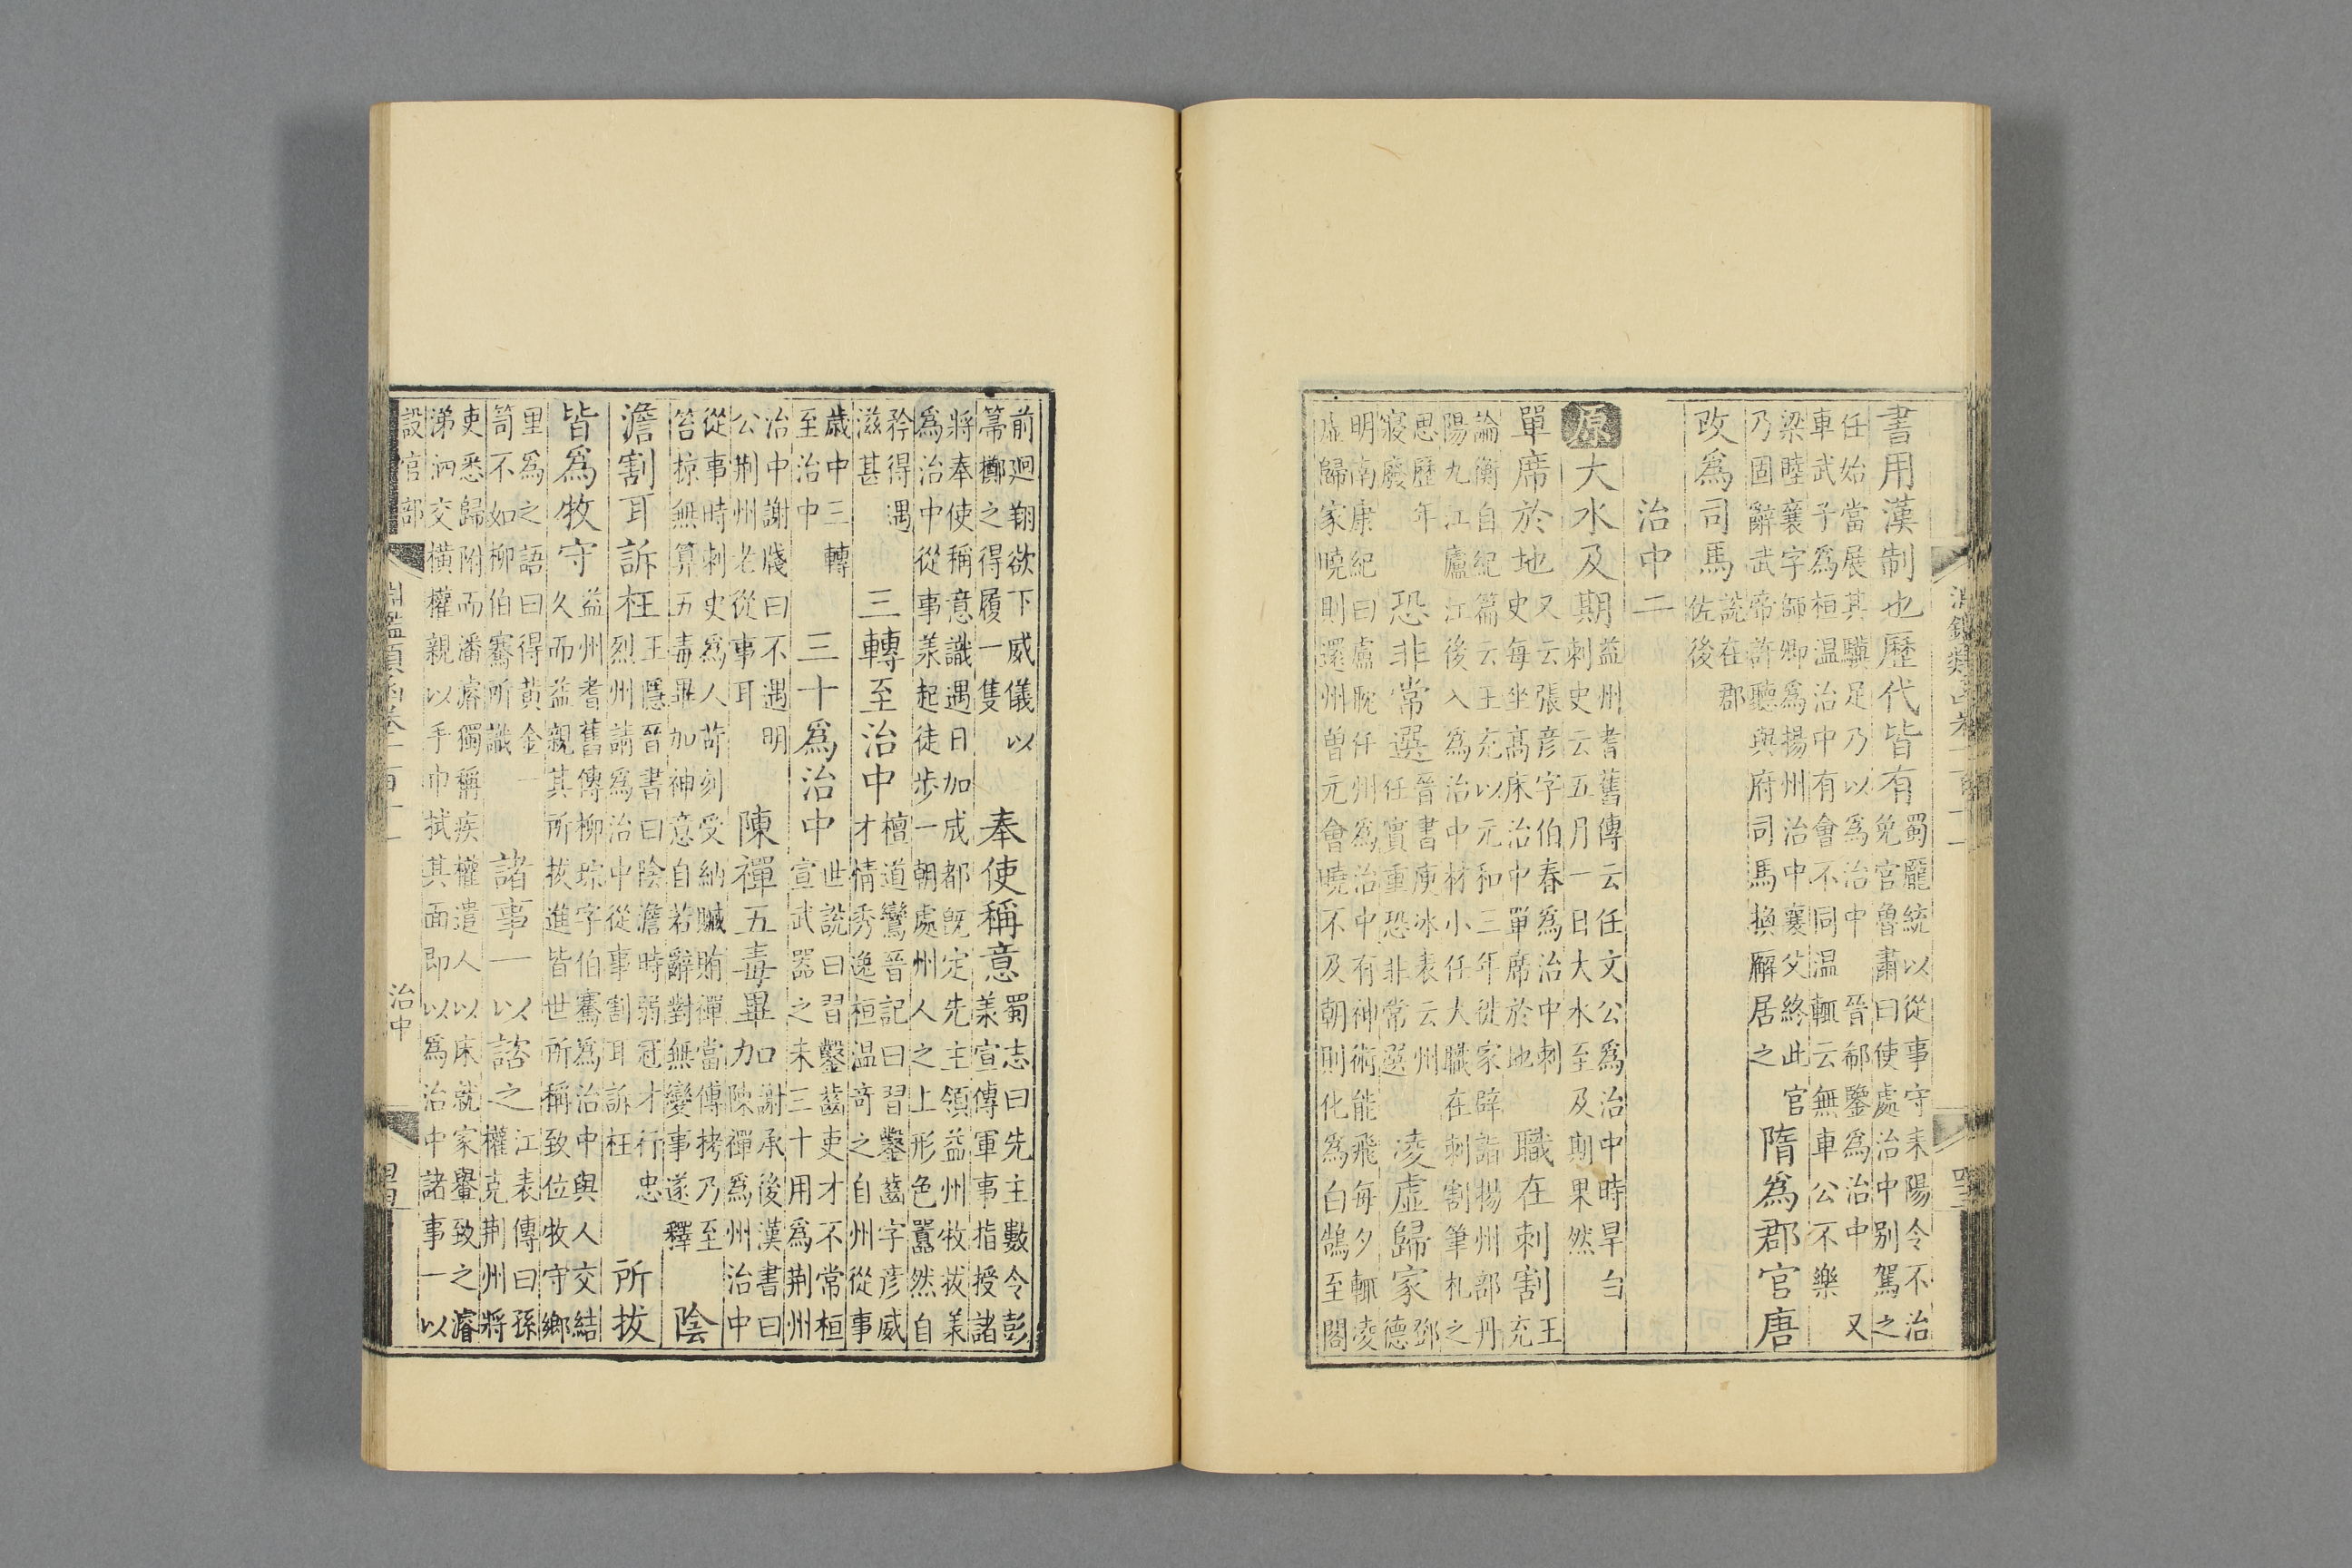 書用漢制也歷代皆有
蜀龐統以從事守耒陽令不治
免官魯肅曰使處治中別駕之
任始當展其驥足乃以爲治中 晉郗鑒爲治中 又
車武子爲桓温治中有會不同温輒云無車公不樂
梁睦襄字師卿爲揚州治中襄父終此官
乃固辭武帝許聽與府司馬換廨居之
隋爲郡官唐
改爲司馬
說在郡
佐後
治中二
原 大水及期
益州耆舊傳云任文公爲治中時旱白
刺史云五月一日大水至及期果然
單席於地
又云張彦字伯春爲治中刺
史每坐高床治中單席於地
職在刺割
王
充
論衡自紀篇云王充以元和三年徙家辟詣揚州部丹
陽九江廬江後入爲治中材小任大職在刺割筆札之
思歷年
寢廢
恐非常選
晉書庾冰表云州
任實重恐非常選
凌虛歸家
鄧
德
明南康紀曰盧耽任州爲治中有神術能飛每夕輒凌
虛歸家曉則還州曾元會曉不及朝則化爲白鵠至閣
前迴翔欲下威儀以
箒擲之得履一隻
奉使稱意
蜀志曰先主數令彭
羕宣傳軍事指授諸
將奉使稱意識遇日加成都既定先主領益州牧拔羕
爲治中從事羕起徒步一朝處州人之上形色囂然自
矜得遇
滋甚
三轉至治中
檀道鸞晉記曰習鑿齒字彦威
才情秀逸桓温奇之自州從事
歲中三轉
至治中
三十爲治中
世說曰習鑿齒吏才不常桓
宣武器之未三十用爲荆州
治中謝牋曰不遇明
公荆州老從事耳
陳禪五毒畢加
謝承後漢書曰
陳禪爲州治中
從事時刺史爲人苛刻受納贓賄禪當傳拷乃至
笞掠無算五毒畢加神意自若辭對無變事遂釋
陰
澹割耳訴枉
王隱晉書曰陰澹時弱冠才行忠
烈州請爲治中從事割耳訴枉
所拔
皆爲牧守
益州耆舊傳柳琮字伯騫爲治中與人交結
久而益親其所拔進皆世所稱致位牧守鄉
里爲之語曰得黃金一
笥不如柳伯騫所識
諸事一以諮之
江表傳曰孫
權克荆州將
吏悉歸附而潘濬獨稱疾權遣人以床就家轝致之濬
涕泗交橫權親以手巾拭其面即以爲治中諸事一以
設官部
淵鑑類函卷一百十一
治中